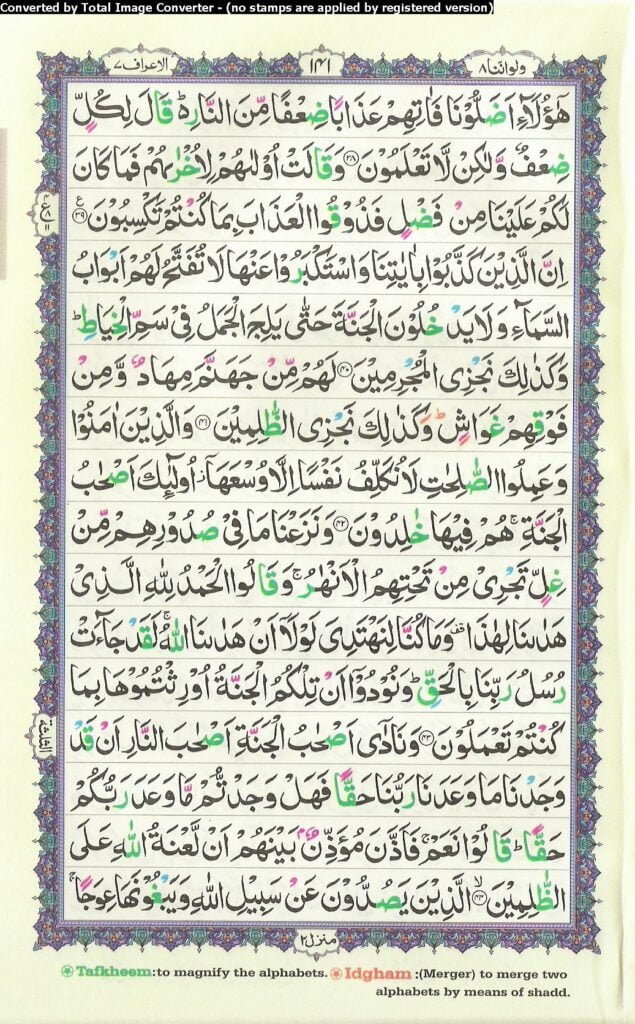 Converted by Total Image Converter - (no stamps are applied by registered version)
ولواننا ٨
١٤١
الاعراف ٧
هٰۤؤُلَآءِ اَضَلُّوۡنَا فَاٰتِهِمۡ عَذَابًا ضِعۡفًا مِّنَ النَّارِ ؕ قَالَ لِكُلٍّ
ضِعۡفٌ وَّلٰكِنۡ لَّا تَعۡلَمُوۡنَ ﴿۳۸﴾ وَقَالَتۡ اُوۡلٰٮهُمۡ لِاُخۡرٰٮهُمۡ فَمَا كَانَ
لَكُمۡ عَلَيۡنَا مِنۡ فَضۡلٍ فَذُوۡقُوا الۡعَذَابَ بِمَا كُنۡتُمۡ تَكۡسِبُوۡنَ ﴿۳۹﴾
اِنَّ الَّذِيۡنَ كَذَّبُوۡا بِاٰيٰتِنَا وَاسۡتَكۡبَرُوۡا عَنۡهَا لَا تُفَتَّحُ لَهُمۡ اَبۡوَابُ
السَّمَآءِ وَلَا يَدۡخُلُوۡنَ الۡجَنَّةَ حَتّٰى يَلِجَ الۡجَمَلُ فِىۡ سَمِّ الۡخِيَاطِ ؕ
وَكَذٰلِكَ نَجۡزِى الۡمُجۡرِمِيۡنَ ﴿۴۰﴾ لَهُمۡ مِّنۡ جَهَنَّمَ مِهَادٌ وَّمِنۡ
فَوۡقِهِمۡ غَوَاشٍ ؕ وَكَذٰلِكَ نَجۡزِى الظّٰلِمِيۡنَ ﴿۴۱﴾ وَالَّذِيۡنَ اٰمَنُوۡا
وَعَمِلُوا الصّٰلِحٰتِ لَا نُكَلِّفُ نَفۡسًا اِلَّا وُسۡعَهَاۤ اُولٰٓئِكَ اَصۡحٰبُ
الۡجَنَّةِ ۚ هُمۡ فِيۡهَا خٰلِدُوۡنَ ﴿۴۲﴾ وَنَزَعۡنَا مَا فِىۡ صُدُوۡرِهِمۡ مِّنۡ
غِلٍّ تَجۡرِىۡ مِنۡ تَحۡتِهِمُ الۡاَنۡهٰرُ ۚ وَقَالُوا الۡحَمۡدُ لِلّٰهِ الَّذِىۡ
هَدٰٮنَا لِهٰذَا وَمَا كُنَّا لِنَهۡتَدِىَ لَوۡلَاۤ اَنۡ هَدٰٮنَا اللّٰهُ ۚ لَقَدۡ جَآءَتۡ
رُسُلُ رَبِّنَا بِالۡحَقِّ ؕ وَنُوۡدُوۡۤا اَنۡ تِلۡكُمُ الۡجَنَّةُ اُوۡرِثۡتُمُوۡهَا بِمَا
كُنۡتُمۡ تَعۡمَلُوۡنَ ﴿۴۳﴾ وَنَادٰٓى اَصۡحٰبُ الۡجَنَّةِ اَصۡحٰبَ النَّارِ اَنۡ قَدۡ
وَجَدۡنَا مَا وَعَدَنَا رَبُّنَا حَقًّا فَهَلۡ وَجَدْتُّمۡ مَّا وَعَدَ رَبُّكُمۡ
حَقًّا ؕ قَالُوۡا نَعَمۡ ۚ فَاَذَّنَ مُؤَذِّنٌۢ بَيۡنَهُمۡ اَنۡ لَّعۡنَةُ اللّٰهِ عَلَى
الظّٰلِمِيۡنَ ﴿۴۴﴾ الَّذِيۡنَ يَصُدُّوۡنَ عَنۡ سَبِيۡلِ اللّٰهِ وَيَبۡغُوۡنَهَا عِوَجًا ۚ
الثلثة
منزل ٢
Tafkheem:to magnify the alphabets. Idgham :(Merger) to merge two
alphabets by means of shadd.